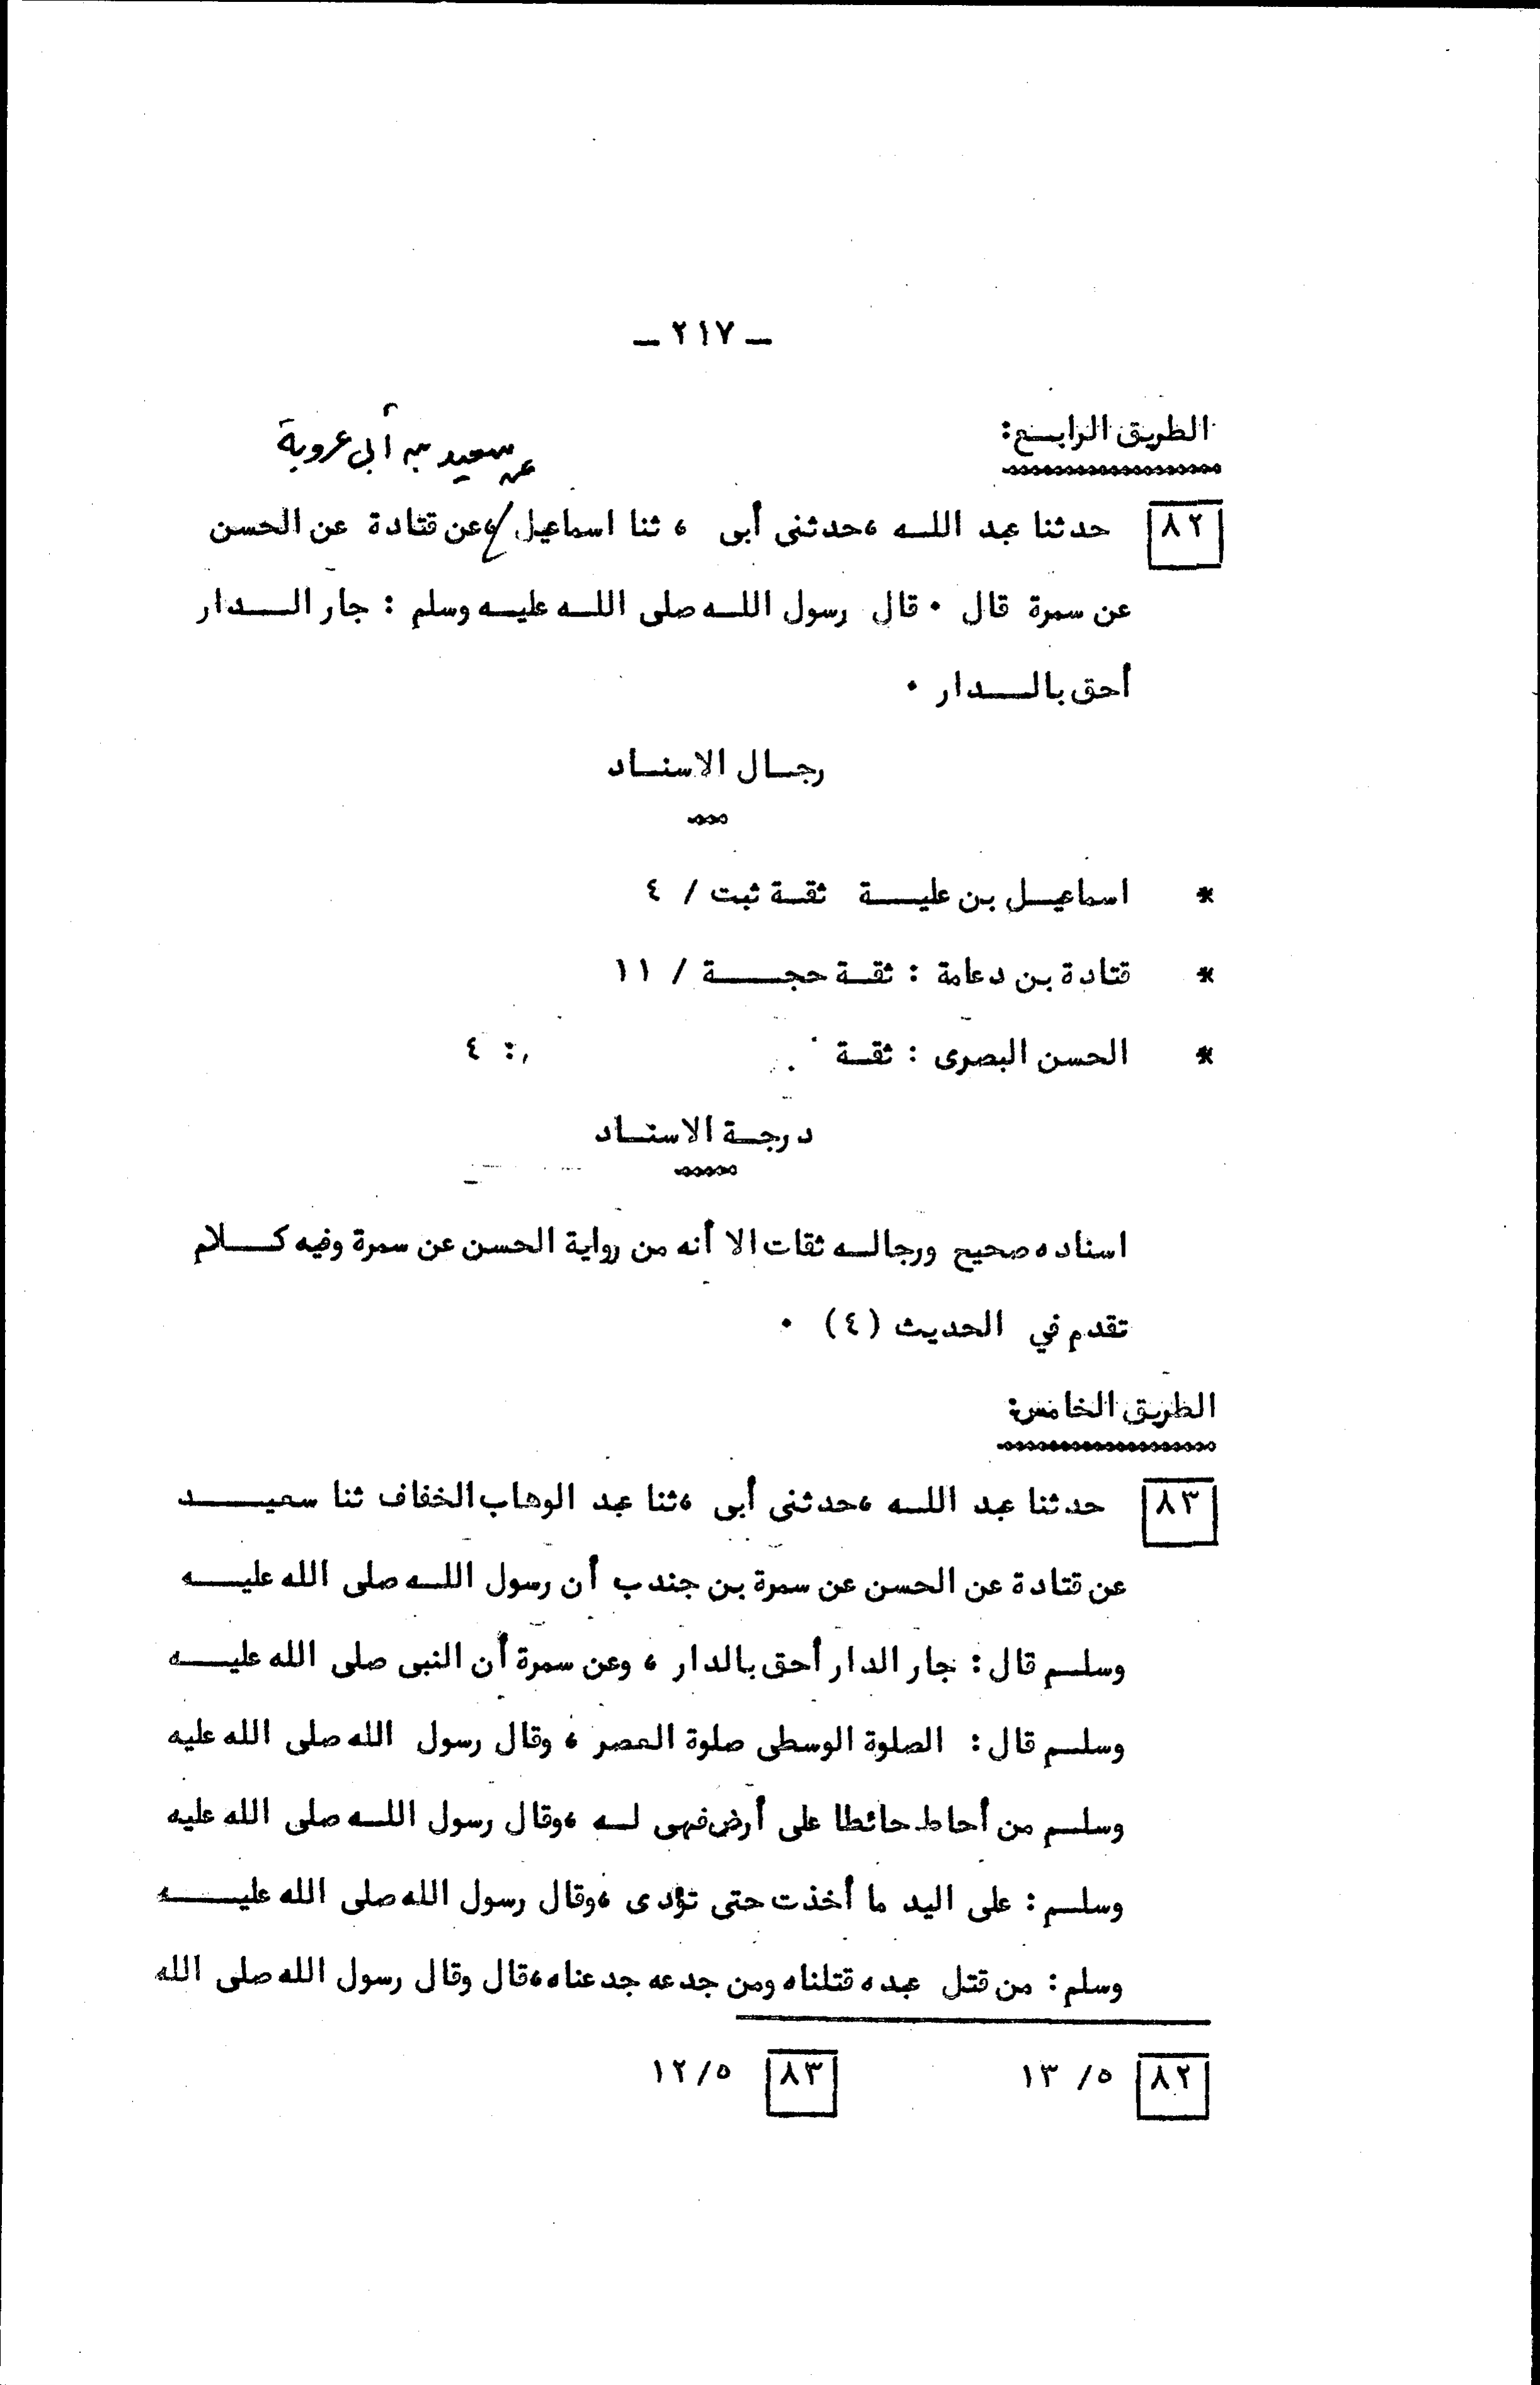 ـ ٢١٧ ـ
الطريق الرابع:
عن سعيد بن أبي عروبة
٨٢ حدثنا عبد الله ، حدثنى أبى ، ثنا اسماعيل / ، عن قتادة عن الحسن
عن سمرة قال ٠ قال رسول الله صلى الله عليه وسلم : جار الدار
أحق بالدار ٠
رجال الاسناد
* اسماعيل بن علية ثقة ثبت / ٤
* قتادة بن دعامة : ثقة حجة / ١١
* الحسن البصرى : ثقة : ٤
درجة الاسناد
اسناده صحيح ورجاله ثقات الا أنه من رواية الحسن عن سمرة وفيه كلام
تقدم في الحديث (٤) ٠
الطريق الخامس:
٨٣ حدثنا عبد الله ، حدثنى أبى ، ثنا عبد الوهاب الخفاف ثنا سعيد
عن قتادة عن الحسن عن سمرة بن جندب أن رسول الله صلى الله عليه
وسلم قال : جار الدار أحق بالدار ، وعن سمرة أن النبى صلى الله عليه
وسلم قال : الصلوة الوسطى صلوة العصر ، وقال رسول الله صلى الله عليه
وسلم من أحاط حائطا على أرض فهى له ، وقال رسول الله صلى الله عليه
وسلم : على اليد ما أخذت حتى تؤدى ، وقال رسول الله صلى الله عليه
وسلم : من قتل عبده قتلناه ومن جدعه جدعناه ، قال وقال رسول الله صلى الله
٨٢ ٥/ ١٣ ٨٣ ٥/١٢